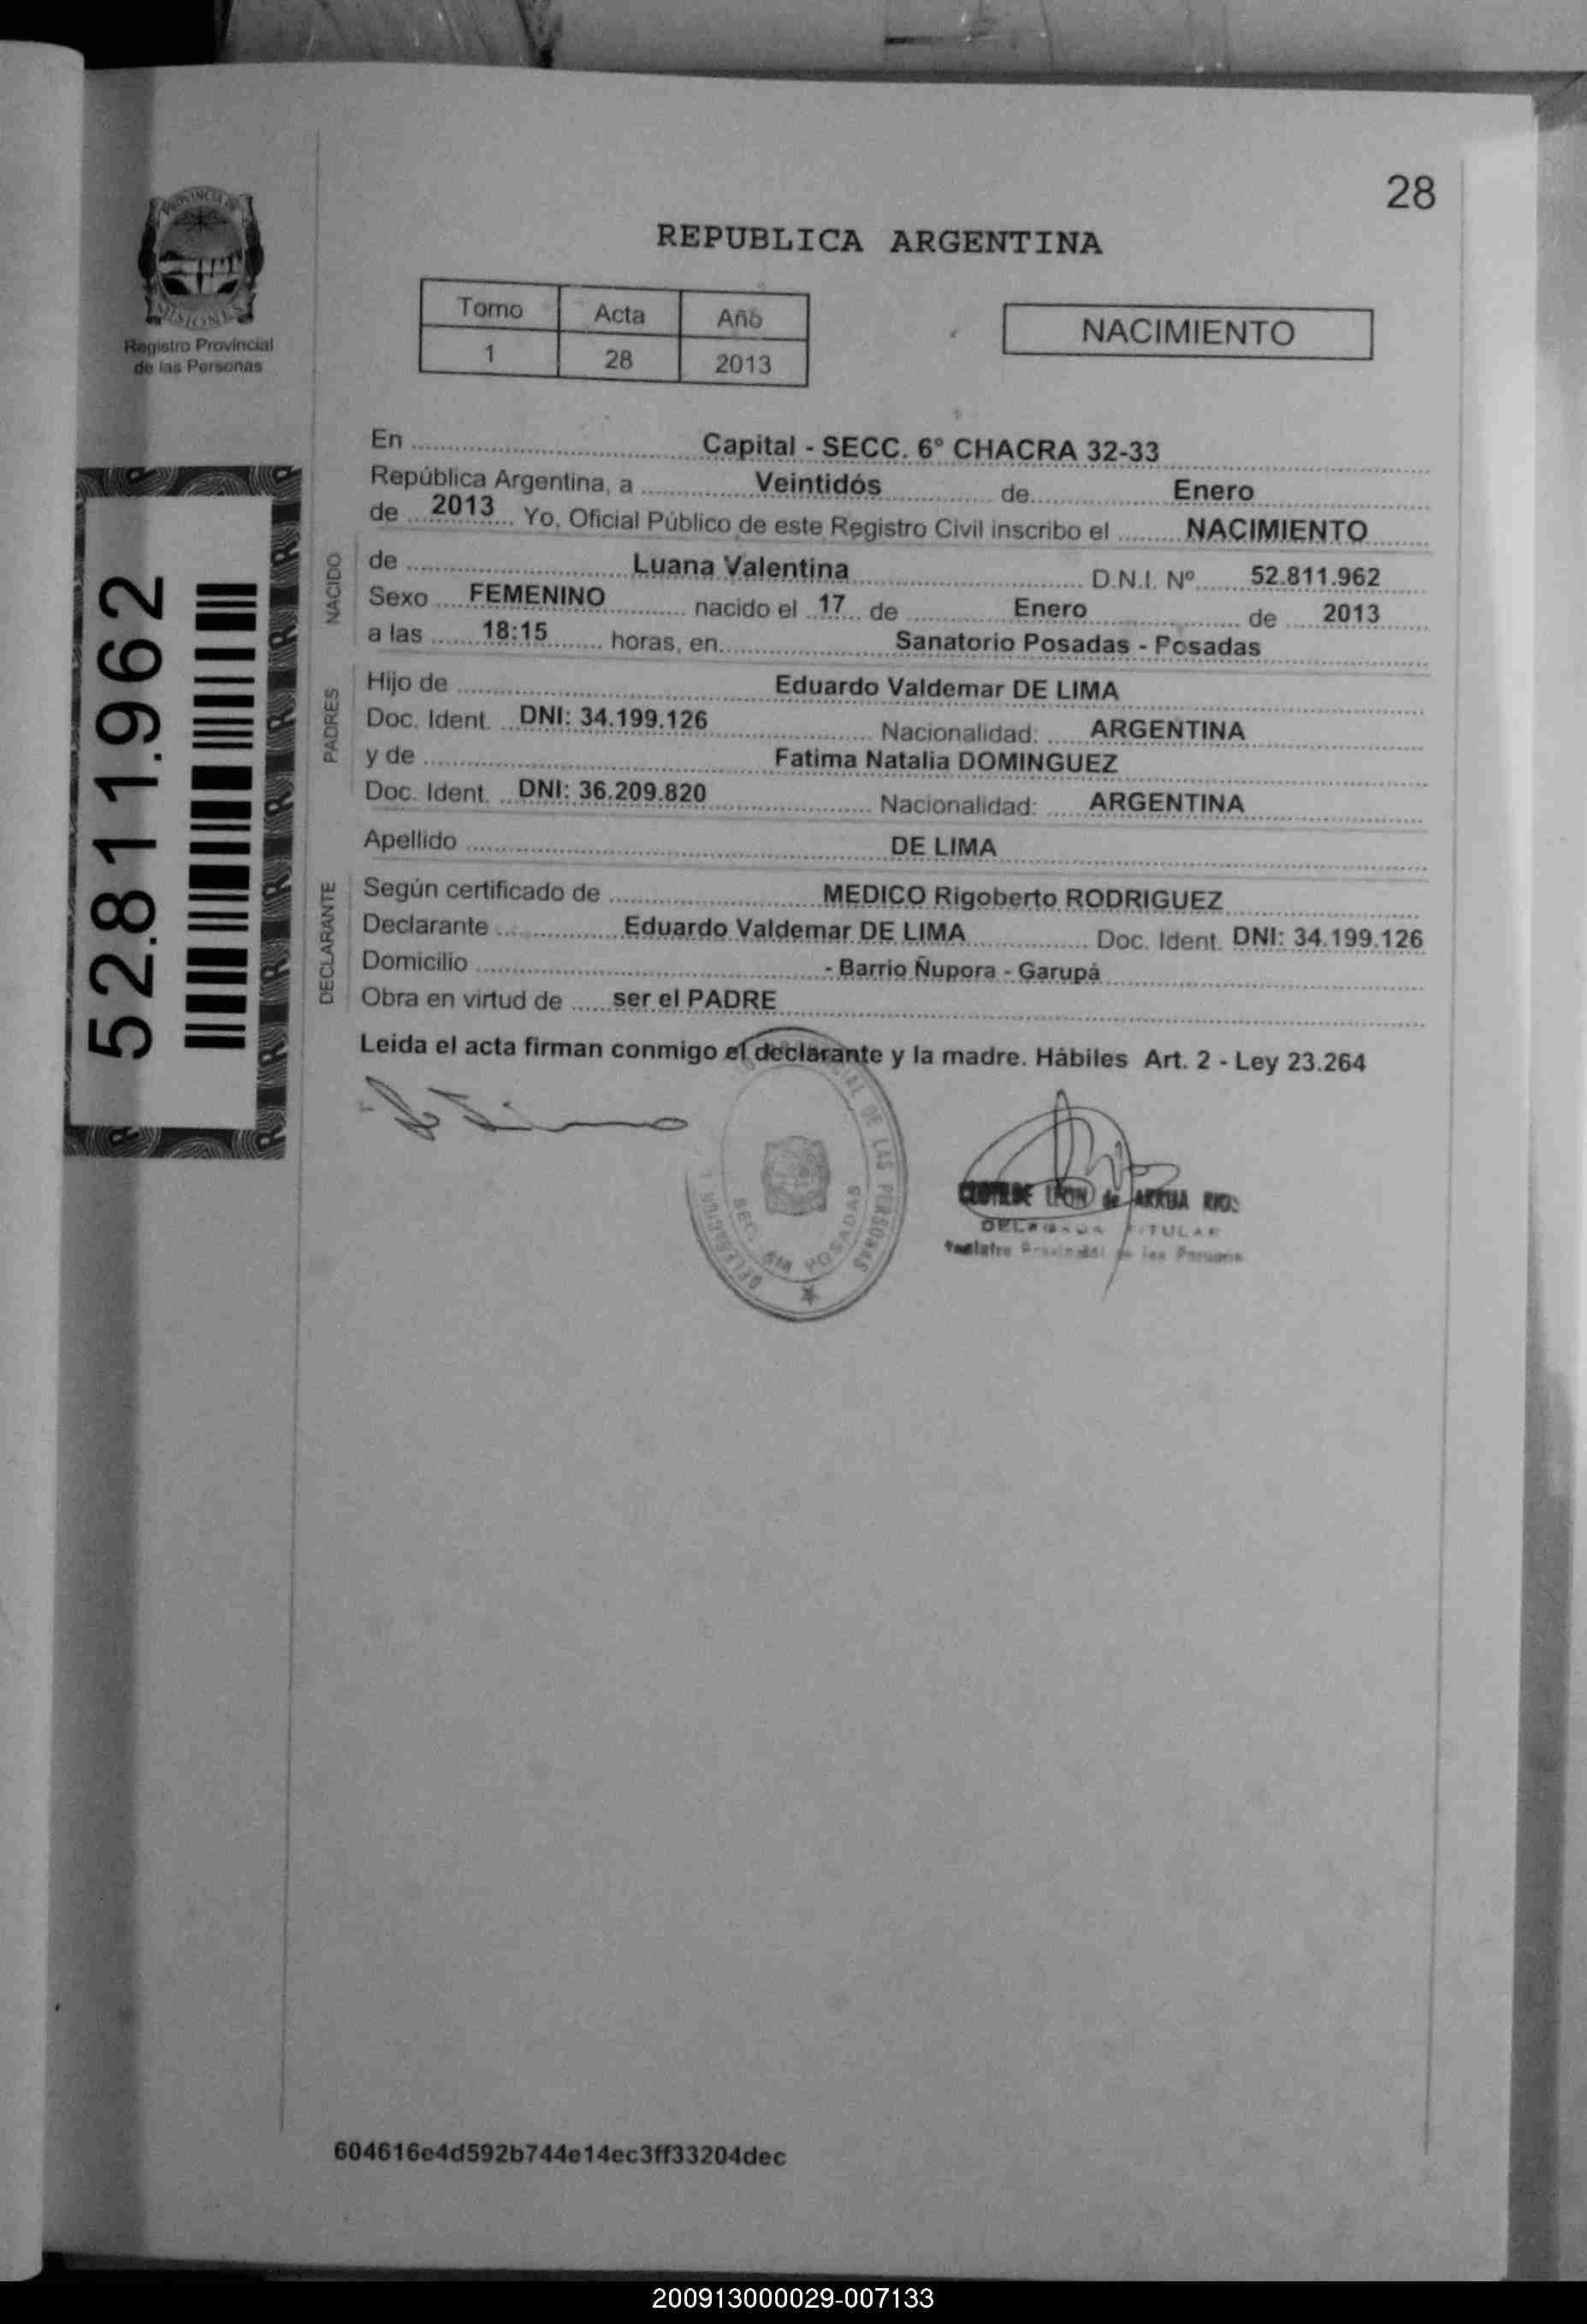 28
PROVINCIA DE
MISIONES
Registro Provincial
de las Personas
REPUBLICA ARGENTINA
Tomo Acta Año
1 28 2013
NACIMIENTO
En Capital - SECC. 6° CHACRA 32-33
República Argentina, a Veintidós de Enero
de 2013 Yo, Oficial Público de este Registro Civil inscribo el NACIMIENTO
NACIDO
de Luana Valentina D.N.I. Nº 52.811.962
Sexo FEMENINO nacido el 17 de Enero de 2013
a las 18:15 horas, en Sanatorio Posadas - Posadas
PADRES
Hijo de Eduardo Valdemar DE LIMA
Doc. Ident. DNI: 34.199.126 Nacionalidad: ARGENTINA
y de Fatima Natalia DOMINGUEZ
Doc. Ident. DNI: 36.209.820 Nacionalidad: ARGENTINA
Apellido DE LIMA
DECLARANTE
Según certificado de MEDICO Rigoberto RODRIGUEZ
Declarante Eduardo Valdemar DE LIMA Doc. Ident. DNI: 34.199.126
Domicilio - Barrio Ñupora - Garupá
Obra en virtud de ser el PADRE
Leída el acta firman conmigo el declarante y la madre. Hábiles Art. 2 - Ley 23.264
52.811.962
DE LAS PERSONAS
DELEGACION
SEC. POSADAS
de ARRUA
TITULAR
604616e4d592b744e14ec3ff33204dec
200913000029-007133